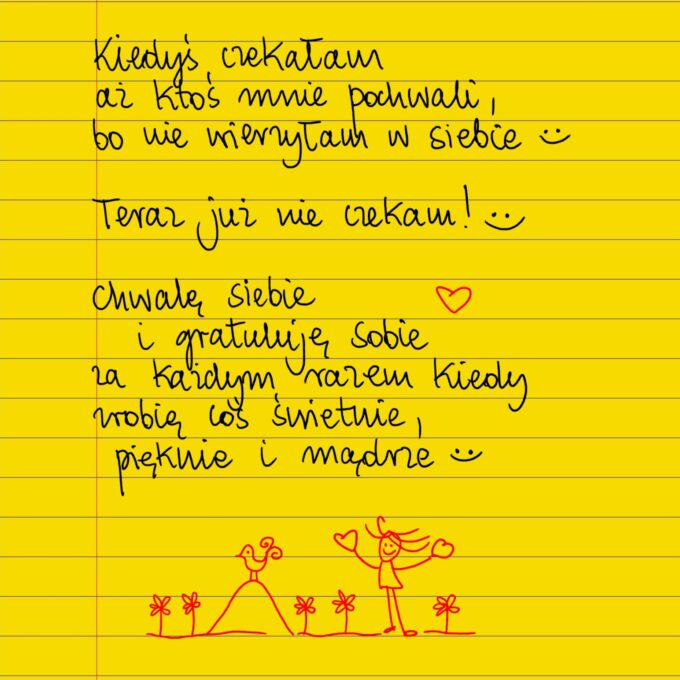 Kiedyś czekałam
aż ktoś mnie pochwali,
bo nie wierzyłam w siebie
Teraz już nie czekam!
Chwalę siebie
i gratuluję sobie
za każdym razem kiedy
zrobię coś świetnie,
pięknie i mądrze